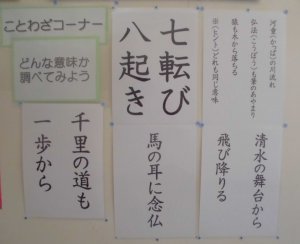 ことわざコーナー
どんな意味か
調べてみよう
七転び
八起き
河童(かっぱ)の川流れ
弘法(こうぼう)も筆のあやまり
猿も木から落ちる
※(ヒント)どれも同じ意味
千里の道も
一歩から
馬の耳に念仏
清水の舞台から
飛び降りる